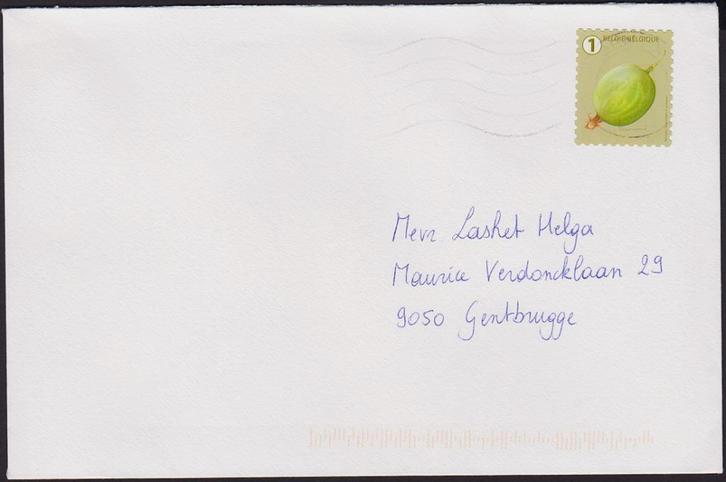 1 BELGIË-BELGIQUE
Mevr Lashet Helga
Maurice Verdoncklaan 29
9050 Gentbrugge